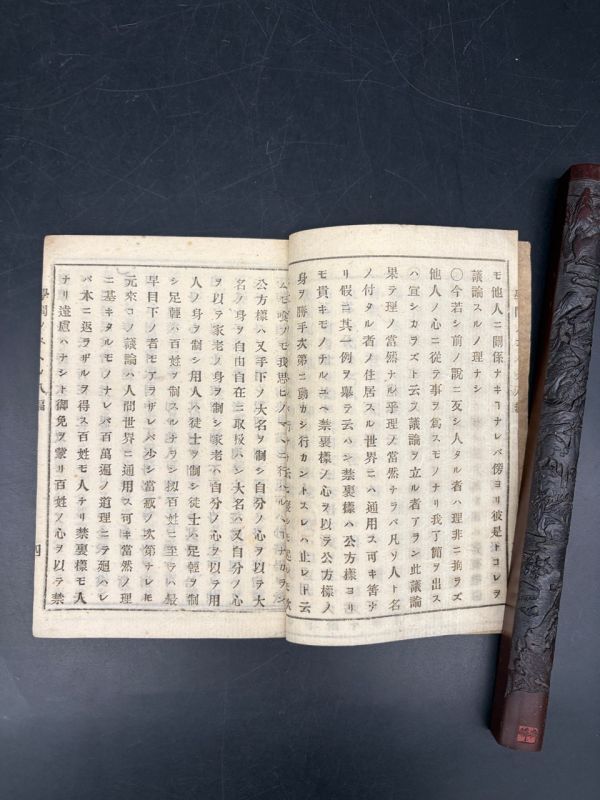 モ他人ニ關係ナキヿナレバ傍ヨリ彼是トコレヲ
議論スルノ理ナシ
○今若シ前ノ說ニ反シ人タル者ハ理非ニ拘ラズ
他人ノ心ニ從テ事ヲ爲スモノナリ我了簡ヲ出ス
ハ宜シカラズト云フ議論ヲ立ル者アラン此議論
果テ理ノ當然ナル乎理ノ當然ナラバ凡ソ人ト名
ノ付タル者ノ住居スル世界ニハ通用ス可キ筈ナ
リ假ニ其一例ヲ擧テ云ハン禁裏樣ハ公方樣ヨリ
モ貴キモノナルユヘ禁裏樣ノ心ヲ以テ公方樣ノ
身ヲ勝手次第ニ動カシ行カントスレハ止レト云
公方樣ハ又手下ノ大名ヲ制シ自分ノ心ヲ以テ大
名ノ身ヲ自由自在ニ取扱ハン大名ハ又自分ノ心
ヲ以テ家老ノ身ヲ制シ家老ハ自分ノ心ヲ以テ用
人ノ身ヲ制シ用人ハ徒士ヲ制シ徒士ハ足輕ヲ制
シ足輕ハ百姓ヲ制スルナラン扨百姓ニ至テハ最
早目下ノ者モアラザレバ少シ當惑ノ次第ナレモ
元來コノ議論ハ人間世界ニ通用ス可キ當然ノ理
ニ基キタルモノナレバ百萬遍ノ道理ニテ廻ハレ
バ本ニ返ラザルヲ得ス百姓モ人ナリ禁裏樣モ人
ナリ遠慮ハナシト御免ヲ蒙リ百姓ノ心ヲ以テ禁
四